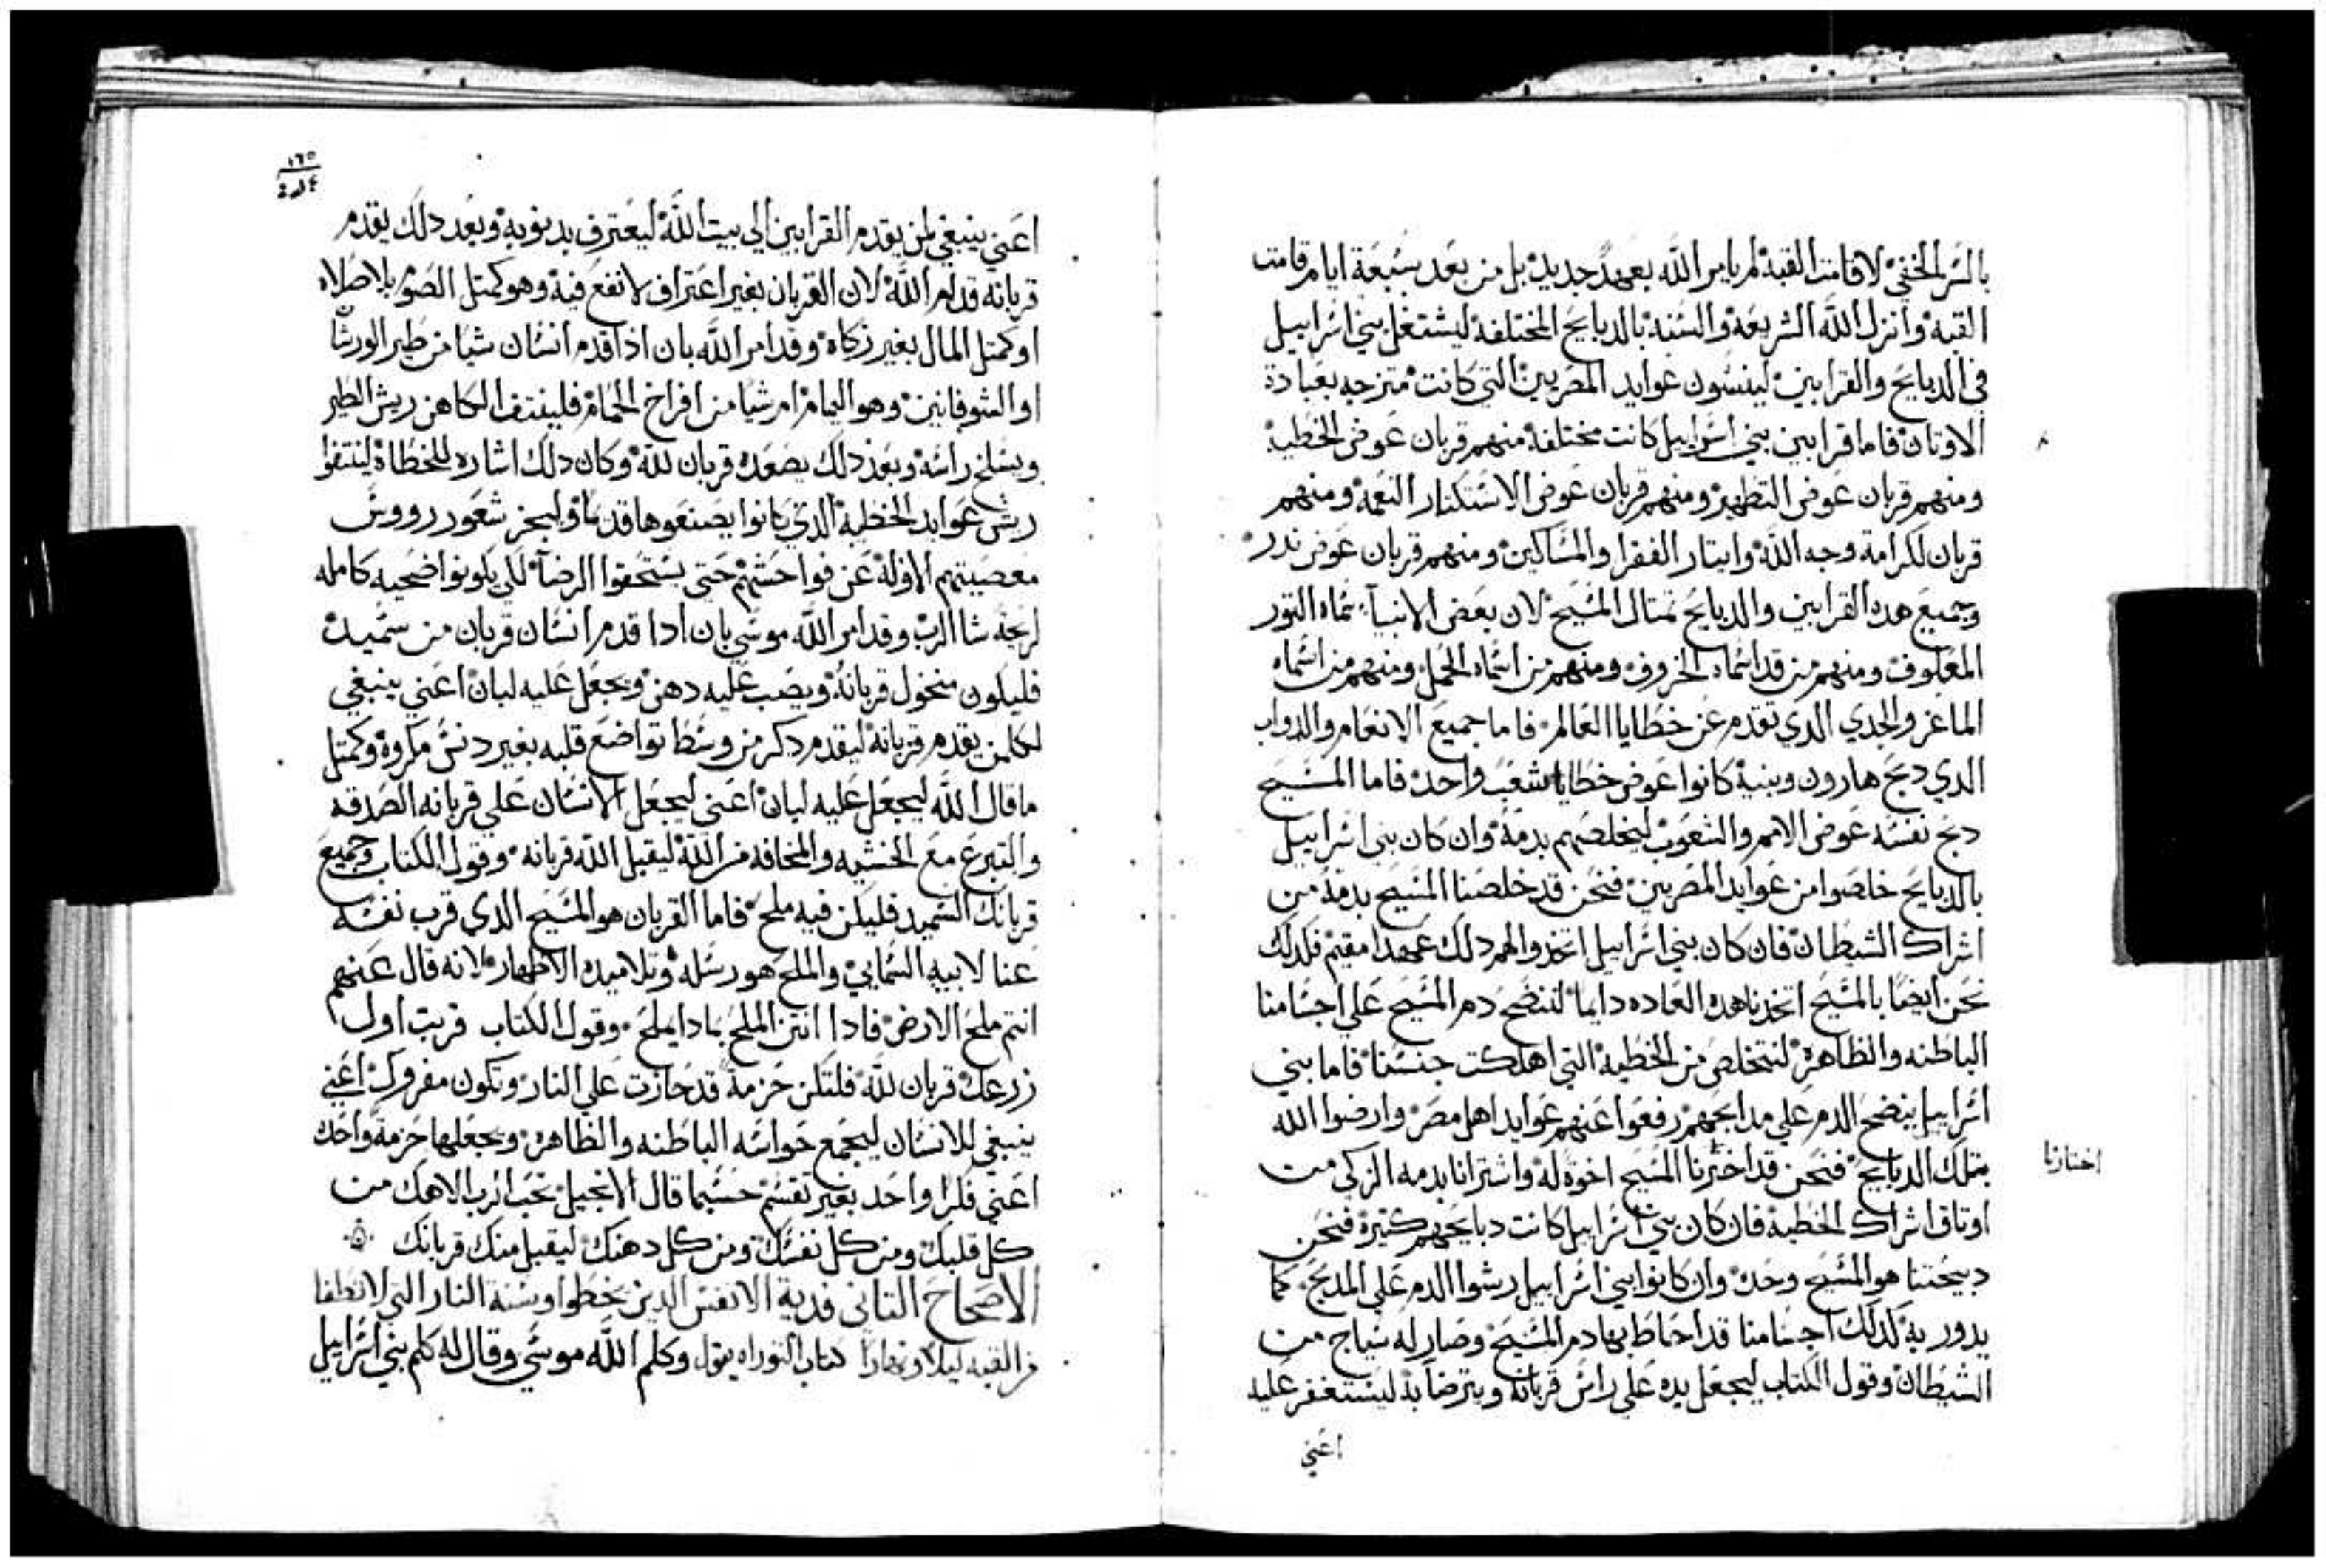 بالسر الخفي لاقامت القبه لم يامر الله بعهد جديد بل من بعد سبعة ايام قامت
القبه وانزل الله الشريعه والسنه بالدبايح المختلفه ليشتغل بني اسراييل
في الدبايح والقرابين لينسون عوايد المصريين التي كانت متزجه بعبادة
الاوتان فاما قرابين بني اسراييل كانت مختلفه منهم قربان عوض الخطيه
ومنهم قربان عوض التطهير ومنهم قربان عوض الاستكتار النعمه ومنهم
قربان لكرامة وجه الله وايتار الفقرا والمساكين ومنهم قربان عوض ندر
وجميع هده القرابين والدبايح تمتال المسيح لان بعض الانبيآ سماه التور
المعلوف ومنهم من قد اسماه الخروف ومنهم من اسماه الحمل ومنهم من اسماه
الماعز والجدي الدي تقدم عن خطايا العالم فاما جميع الانعام والدواب
الدي دبح هارون وبنيه كانوا عوض خطايا شعب واحد فاما المسيح
دبح نفسه عوض الامم والشعوب ليخلصهم بدمه وان كان بني اسراييل
بالدبايح خلصوا من عوايد المصريين فنحن قد خلصنا المسيح بدمه من
اشراك الشيطان فان كان بني اسراييل اتخدوا لهم دلك عهدا مقيم فلدلك
نحن ايضا بالمسيح اتخدنا هده العاده دايما لننضح دم المسيح علي اجسامنا
الباطنه والظاهره لنتخلص من الخطيه التي اهلكت جنسنا فاما بني
اسراييل بنضح الدم علي مدابحهم رفعوا عنهم عوايد اهل مصر وارضوا الله
بتلك الدبايح فنحن قد اخترنا المسيح اخوة له واشترانا بدمه الزكي من
اختارنا
اوتاق اشراك الخطيه فان كان بني اسراييل كانت دبايحهم كتيرة فنحن
دبيحتنا هو المسيح وحده وان كانوا بني اسراييل رشوا الدم علي المدبح كما
يدور به كدلك اجسامنا قد احاط بها دم المسيح وصار له سياج من
الشيطان وقول الكتاب ليجعل يده علي راس قربانه ويترضا به ليستغفر عليه
اعني
١٦٥
اعني ينبغي لمن يقدم القرابين الي بيت الله ليعترف بدنوبه وبعد دلك يقدم
قربانه قدام الله لان القربان بغير اعتراف لا نفع فيه وهو كمتل الصوم بلا صلاه
او كمتل المال بغير زكاه وقد امر الله بان ادا قدم انسان شيا من طير الورشان
او الشوفانين وهو اليمام ام شيا من افراخ الحمام فلينتف الكاهن ريش الطير
ويسلخ راسه وبعد دلك يصعده قربان لله وكان دلك اشاره للخطاة لينتفوا
ريش عوايد الخطيه الدي كانوا يصنعوها قديما وليجز شعور رووس
معصيتهم الاوله عن فواحشهم حتي يستحقوا الرضآ لكي يكونوا ضحيه كامله
لريحة شا الرب وقد امر الله موسي بان ادا قدم انسان قربان من سميد
فليكون منخول قربانه ويصب عليه دهن ويجعل عليه لبان اعني ينبغي
لكلمن يقدم قربانه ليقدم دكر من وسط تواضع قلبه بغير دنس مكروه وكمتل
ما قال الله ليجعل عليه لبان اعني ليجعل الانسان علي قربانه الصدقه
والتبرع مع الخشيه والمخافه من الله ليقبل الله قربانه وقول الكتاب وجميع
قربانك السميد فليكن فيه ملح فاما القربان هو المسيح الدي قرب نفسه
عنا لابيه السمايي والملح هو رسله وتلاميده الاطهار لانه قال عنهم
انتم ملح الارض فادا انتن الملح بمادا يملح وقول الكتاب قربت اول
زرعك قربان لله فلتكن حزمة قد حازت علي النار وتكون مفروك اعني
ينبغي للانسان ليجمع حواسه الباطنه والظاهره ويجعلها حزمة واحده
اعني فكرا واحد بغير تقسم حسبما قال الانجيل تحب الرب الاهك من
كل قلبك ومن كل نفسك ومن كل دهنك ليقبل منك قربانك
الاصحاح التاني فدية الانفس الدين يخطوا وسنة النار التي لا تطفا
من القبه ليلا ونهارا كتاب التوراه يقول وكلم الله موسي وقال له كلم بني اسراييل